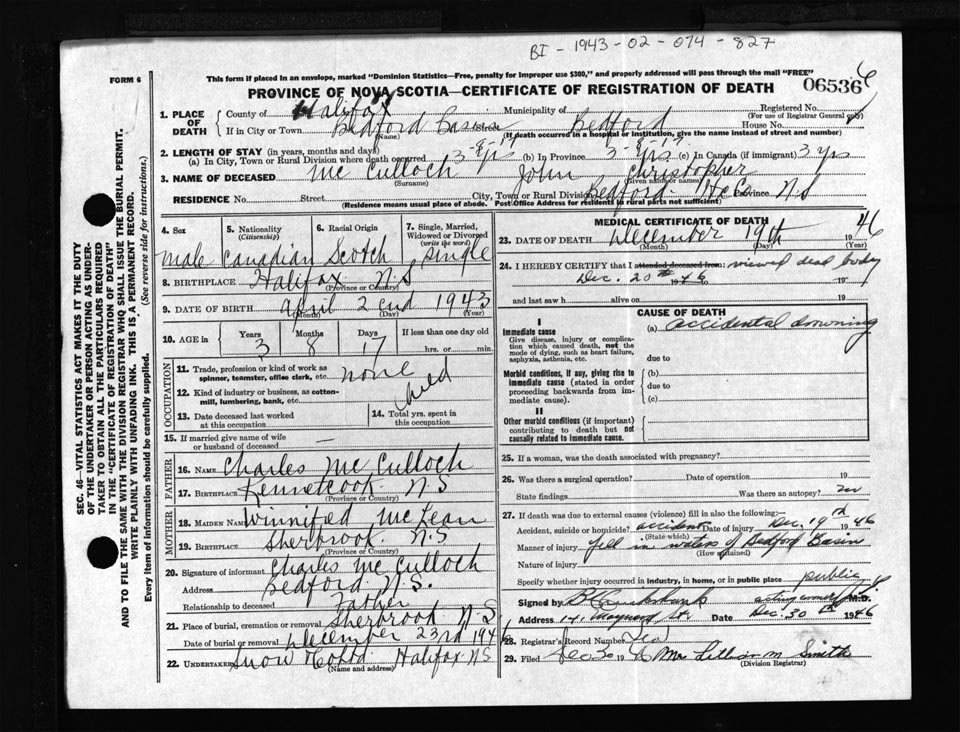 BI - 1943-02-074-827
FORM 6
This form if placed in an envelope, marked "Dominion Statistics—Free, penalty for improper use $300," and properly addressed will pass through the mail "FREE"
PROVINCE OF NOVA SCOTIA—CERTIFICATE OF REGISTRATION OF DEATH
06536
1. PLACE OF DEATH
County of Halifax
Municipality of Bedford
Registered No.
(For use of Registrar General only)
If in City or Town Bedford Basin Street
(Name)
House No.
(If death occurred in a hospital or institution, give the name instead of street and number)
2. LENGTH OF STAY (in years, months and days)
3-8-17
3-8-17
(a) In City, Town or Rural Division where death occurred 3 yrs (b) In Province 3 yrs (c) In Canada (if immigrant) 3 yrs
3. NAME OF DECEASED Mc Culloch John Christopher
(Surname) (Given name or names)
RESIDENCE No. Street City, Town or Rural Division Bedford Hx Co Province N S
(Residence means usual place of abode. Post Office Address for residents in rural parts not sufficient)
4. Sex
5. Nationality (Citizenship)
6. Racial Origin
7. Single, Married, Widowed or Divorced (write the word)
male Canadian Scotch single
8. BIRTHPLACE Halifax N.S
(Province or Country)
9. DATE OF BIRTH April 2 end 1943
(Month) (Day) (Year)
10. AGE in
Years Months Days If less than one day old
3 8 17 hrs. or min.
OCCUPATION
11. Trade, profession or kind of work as spinner, teamster, office clerk, etc. none
12. Kind of industry or business, as cotton-mill, lumbering, bank, etc. child
13. Date deceased last worked at this occupation
14. Total yrs. spent in this occupation
15. If married give name of wife or husband of deceased —
FATHER
16. NAME Charles Mc Culloch
17. BIRTHPLACE Kennetcook N S
(Province or Country)
MOTHER
18. MAIDEN NAME Winnifred McLean
19. BIRTHPLACE Sherbrook N.S
(Province or Country)
20. Signature of informant Charles Mc Culloch
Address Bedford N.S.
Relationship to deceased Father
21. Place of burial, cremation or removal Sherbrood N S
Date of burial or removal December 23rd 1946
22. UNDERTAKER Snow Halifax N S
(Name and address)
MEDICAL CERTIFICATE OF DEATH
23. DATE OF DEATH December 19th 1946
(Month) (Day) (Year)
24. I HEREBY CERTIFY that I attended deceased from: viewed dead body
Dec. 20th 1946 to 19
and last saw h alive on 19
CAUSE OF DEATH
I
Immediate cause
Give disease, injury or complication which caused death, not the mode of dying, such as heart failure, asphyxia, asthenia, etc.
(a) accidental drowning
due to
Morbid conditions, if any, giving rise to immediate cause (stated in order proceeding backwards from immediate cause).
(b)
due to
(c)
II
Other morbid conditions (if important) contributing to death but not causally related to immediate cause.
25. If a woman, was the death associated with pregnancy?
26. Was there a surgical operation? Date of operation 19
State findings Was there an autopsy? no
27. If death was due to external causes (violence) fill in also the following:
Accident, suicide or homicide? accident Date of injury Dec. 19th 1946
(State which)
Manner of injury fell in waters of Bedford Basin
(How sustained)
Nature of injury
Specify whether injury occurred in industry, in home, or in public place public
Signed by acting coroner M.D.
Address Maynard St. Date Dec. 30th 1946
28. Registrar's Record Number
29. Filed Dec 30 19 Mrs Lillian M Smith
(Division Registrar)
SEC. 46—VITAL STATISTICS ACT MAKES IT THE DUTY
OF THE UNDERTAKER OR PERSON ACTING AS UNDER-
TAKER TO OBTAIN ALL THE PARTICULARS REQUIRED
IN THE "CERTIFICATE OF REGISTRATION OF DEATH"
AND TO FILE THE SAME WITH THE DIVISION REGISTRAR WHO SHALL ISSUE THE BURIAL PERMIT.
WRITE PLAINLY WITH UNFADING INK. THIS IS A PERMANENT RECORD.
Every item of information should be carefully supplied. (See reverse side for instructions.)